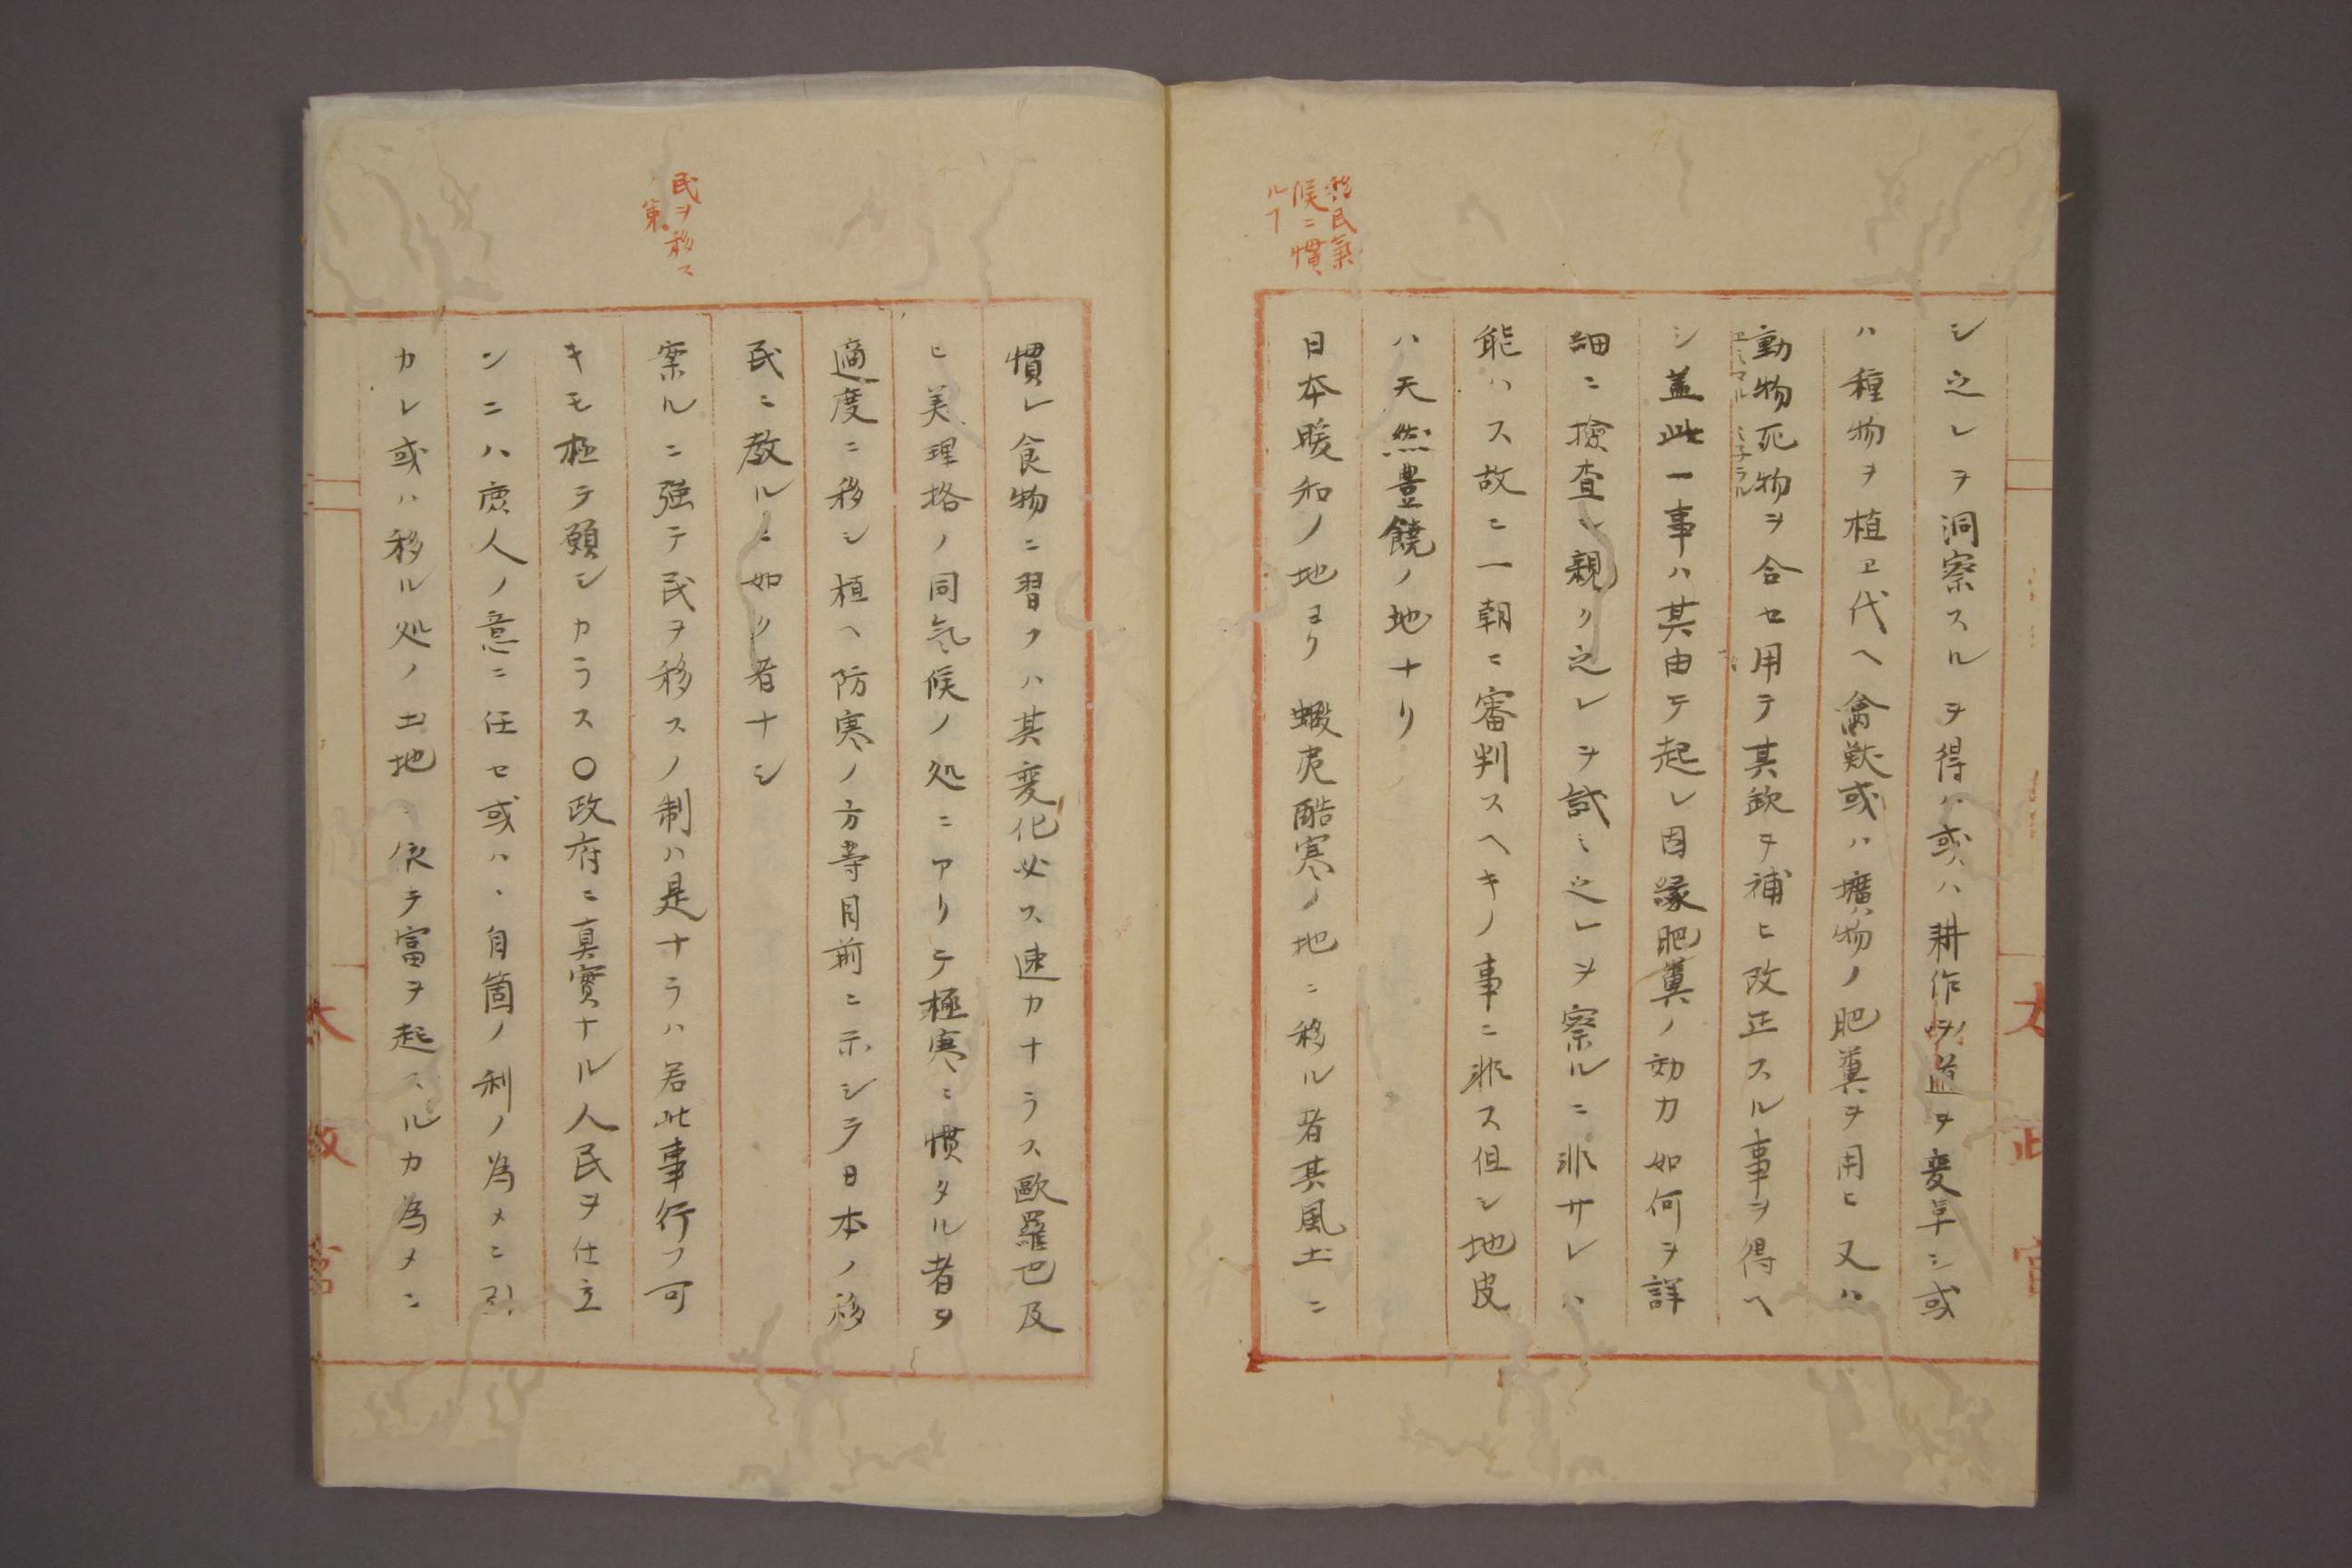 移民氣
候ニ慣
ルヿ
シ之レヲ洞察スルヲ得ハ或ハ耕作ノ道ヲ変革シ或
ハ種物ヲ植ヱ代ヘ禽獣或ハ壙物ノ肥糞ヲ用ヒ又ハ
動物死物ヲ合セ用テ其欠ヲ補ヒ改正スル事ヲ得ヘ
ヱミマル ミ子ラル
シ蓋此一事ハ其由テ起レ因縁肥糞ノ効力如何ヲ詳
細ニ撿査シ親ク之レヲ試ミ之レヲ察ルニ非サレハ
能ハス故ニ一朝ニ審判スヘキノ事ニ非ス但シ地皮
ハ天然豊饒ノ地ナリ
日本暖和ノ地ヨリ蝦夷酷寒ノ地ニ移ル者其風土ニ
太政官
民ヲ移ス
第
慣レ食物ニ習フハ其変化必ス速カナラス歐羅巴及
ヒ美理格ノ同気候ノ処ニアリテ極寒ニ慣タル者ヲ
適度ニ移シ植ヘ防寒ノ方等目前ニ示シテ日本ノ移
民ニ教ルニ如ク者ナシ
案ルニ強テ民ヲ移スノ制ハ是ナラハ若此事行フ可
キモ極テ願シカラス〇政府ニ真實ナル人民ヲ仕立
ンニハ庶人ノ意ニ任セ或ハ自箇ノ利ノ為メニ引
カレ或ハ移ル処ノ土地ニ依テ富ヲ起スルカ為メニ
太政官